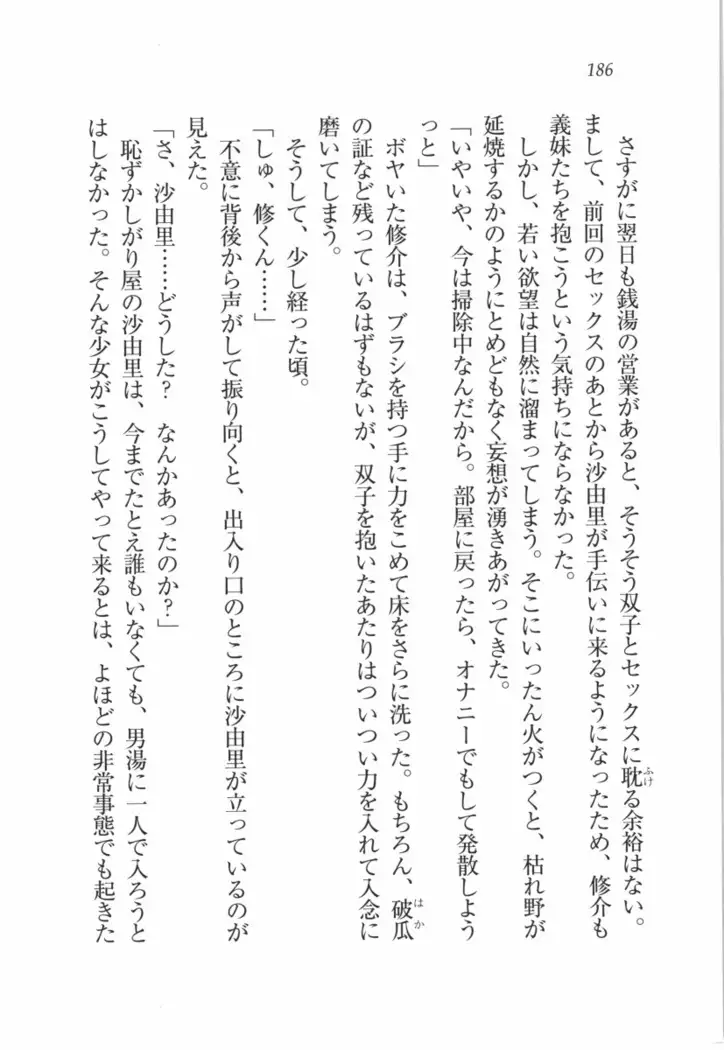 186
さすがに翌日も銭湯の営業があると、そうそう双子とセックスに耽る余裕はない。
ふけ
まして、前回のセックスのあとから沙由里が手伝いに来るようになったため、修介も
義妹たちを抱こうという気持ちにならなかった。
しかし、若い欲望は自然に溜まってしまう。そこにいったん火がつくと、枯れ野が
延焼するかのようにとめどもなく妄想が湧きあがってきた。
「いやいや、今は掃除中なんだから。部屋に戻ったら、オナニーでもして発散しよう
っと」
ボヤいた修介は、ブラシを持つ手に力をこめて床をさらに洗った。もちろん、破瓜
はか
の証など残っているはずもないが、双子を抱いたあたりはついつい力を入れて入念に
磨いてしまう。
そうして、少し経った頃。
「しゅ、修くん……」
不意に背後から声がして振り向くと、出入り口のところに沙由里が立っているのが
見えた。
「さ、沙由里……どうした？　なんかあったのか？」
恥ずかしがり屋の沙由里は、今までたとえ誰もいなくても、男湯に一人で入ろうと
はしなかった。そんな少女がこうしてやって来るとは、よほどの非常事態でも起きた